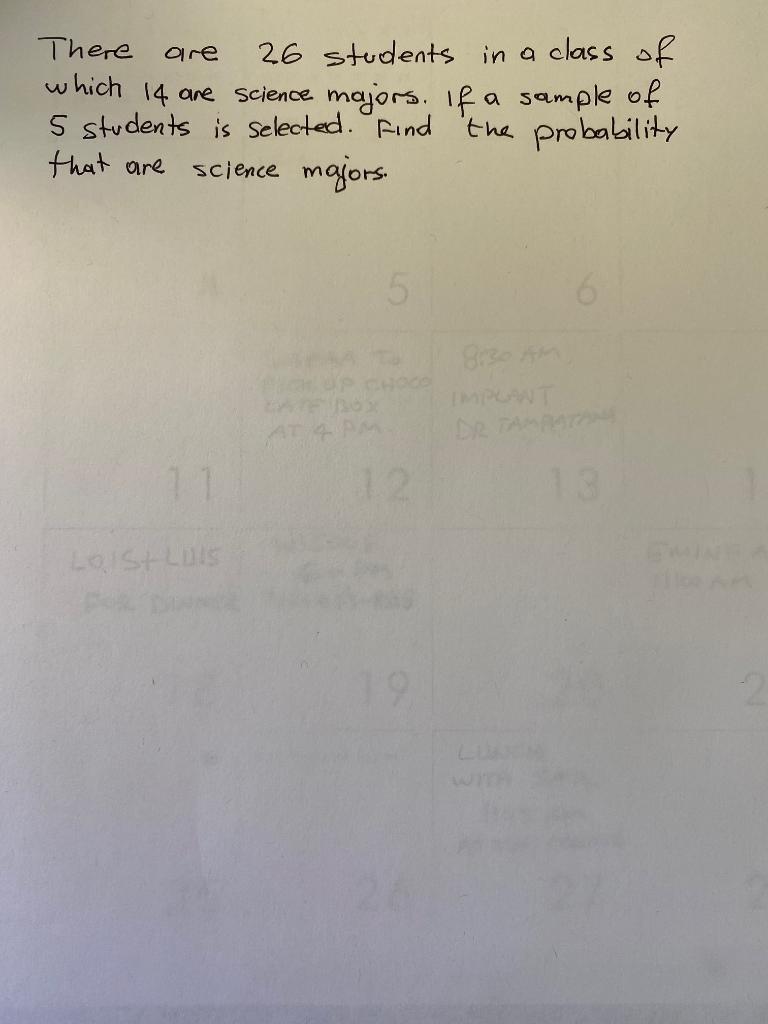 There are 26 students in a class of
which 14 are science majors. If a sample of
5 students is selected. Find the probability
that are science majors.
5 6
8:30 AM
PICK UP CHOCO
LATE BOX IMPLANT
AT 4 PM DR
11 12 13 1
LOIS + LUIS
FOR DINNER
19 20 2
LUNCH
WITH
25 26 27 2